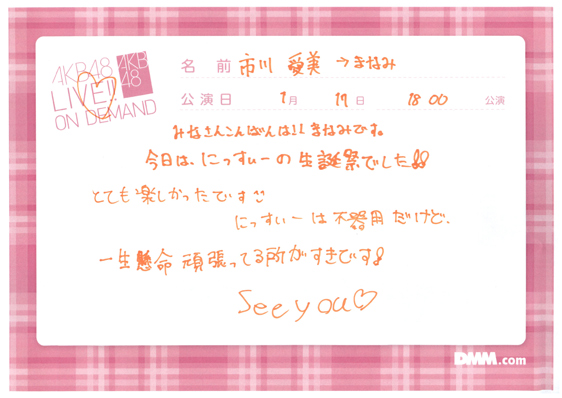 AKB48
LIVE!!
ON DEMAND
AKB
48
名 前 市川 愛美 →まなみ
公演日 1月 17日 18:00 公演
みなさんこんばんは!! まなみです。
今日は、にっすぃーの生誕祭でした!!
とても楽しかったです
にっすぃーは不器用だけど、
一生懸命 頑張ってる所がすきです!
See you♡
DMM.com